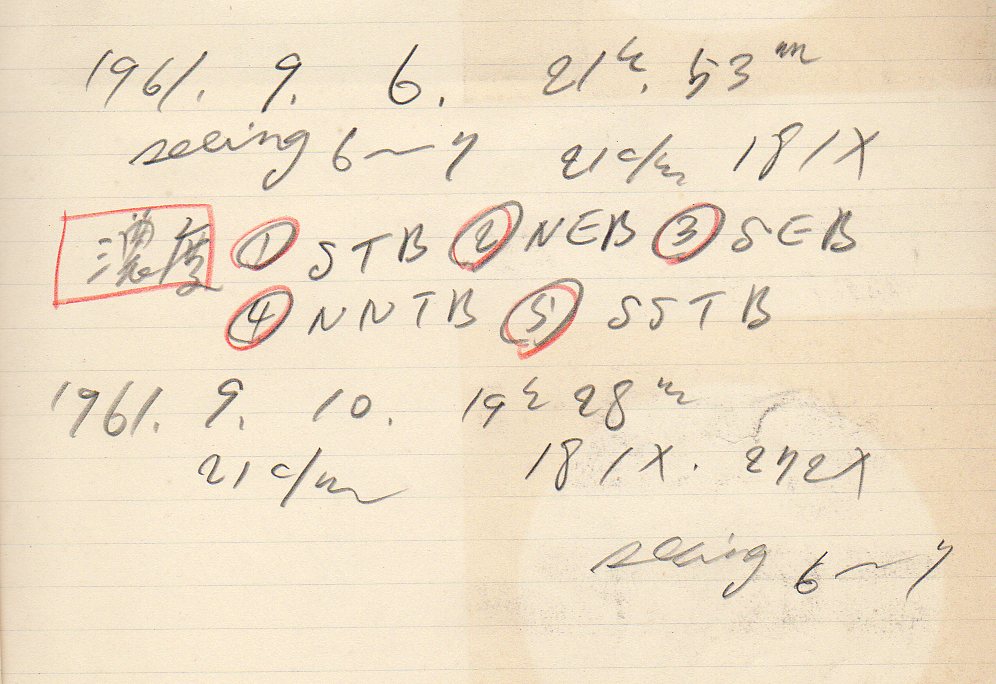 1961. 9. 6. 21h. 53m
seeing 6~7 21c/m 181X
濃度 ① STB ② NEB ③ SEB
④ NNTB ⑤ SSTB
1961. 9. 10. 19h 28m
21c/m 181X. 272X
seeing 6~7